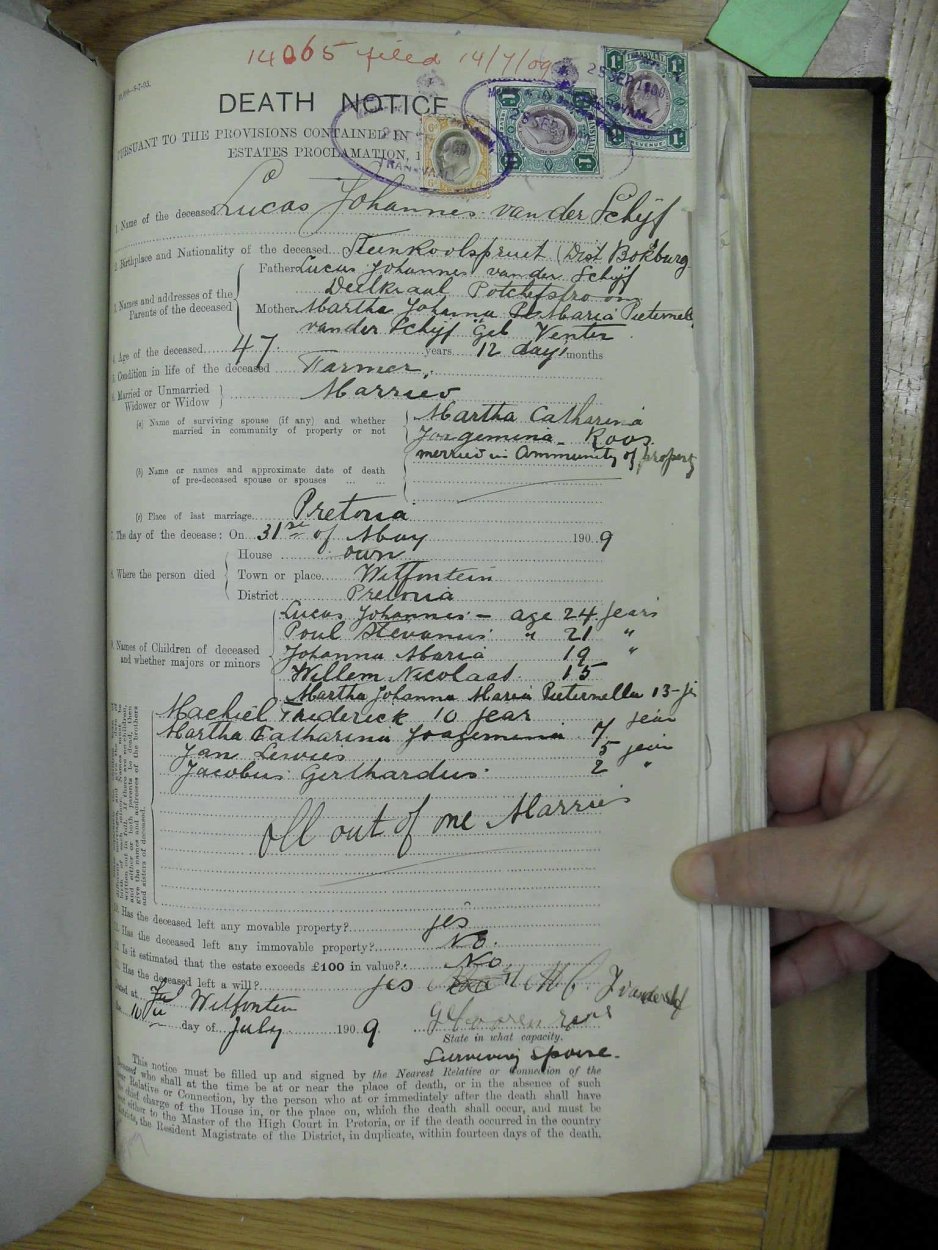 14065 filed 14/7/09
DEATH NOTICE
PURSUANT TO THE PROVISIONS CONTAINED IN
ESTATES PROCLAMATION, 1
TRANSVAAL
REVENUE
1 Name of the deceased Lucas Johannes van der Schijf
2. Birthplace and Nationality of the deceased Steenkoolspruit (Dist Boksburg
3. Names and addresses of the Parents of the deceased
Father Lucas Johannes van der Schijf
Deelkraal Potchefstroom
Mother Martha Johanna Maria Pieternella
van der Schijf Geb Venter
4. Age of the deceased 47 years 12 days months
5. Condition in life of the deceased Farmer
6. Married or Unmarried Widower or Widow Married
(a) Name of surviving spouse (if any) and whether married in community of property or not
Martha Catharina
Joagemina Roos
merried in Community of property
(b) Name or names and approximate date of death of pre-deceased spouse or spouses
(c) Place of last marriage Pretoria
7. The day of the decease: On 31st of May 1909
8. Where the person died
House own
Town or place Witfontein
District Pretoria
9. Names of Children of deceased and whether majors or minors
Lucas Johannes - age 24 jears
Poul Stevanus " 21 "
Johanna Maria 19 "
Willem Nicolaas 15
Martha Johanna Maria Pieternella 13 -
Machiel Frederick 10 jear
Martha Catharina Joagemina 7 jear
Jan Lewies 5 jear
Jacobus Gerthardus 2 "
give the names and addresses of the brothers
and sisters of deceased.
all out of one Marrie
10. Has the deceased left any movable property? jes
11. Has the deceased left any immovable property? No.
12. Is it estimated that the estate exceeds £100 in value? No
13. Has the deceased left a will? jes
Dated at Witfontein
the 10 day of July 1909
State in what capacity.
Surviving Spouse.
This notice must be filled up and signed by the Nearest Relative or Connection of the
Deceased who shall at the time be at or near the place of death, or in the absence of such
near Relative or Connection, by the person who at or immediately after the death shall have
the chief charge of the House in, or the place on, which the death shall occur, and must be
sent either to the Master of the High Court in Pretoria, or if the death occurred in the country
districts, the Resident Magistrate of the District, in duplicate, within fourteen days of the death.